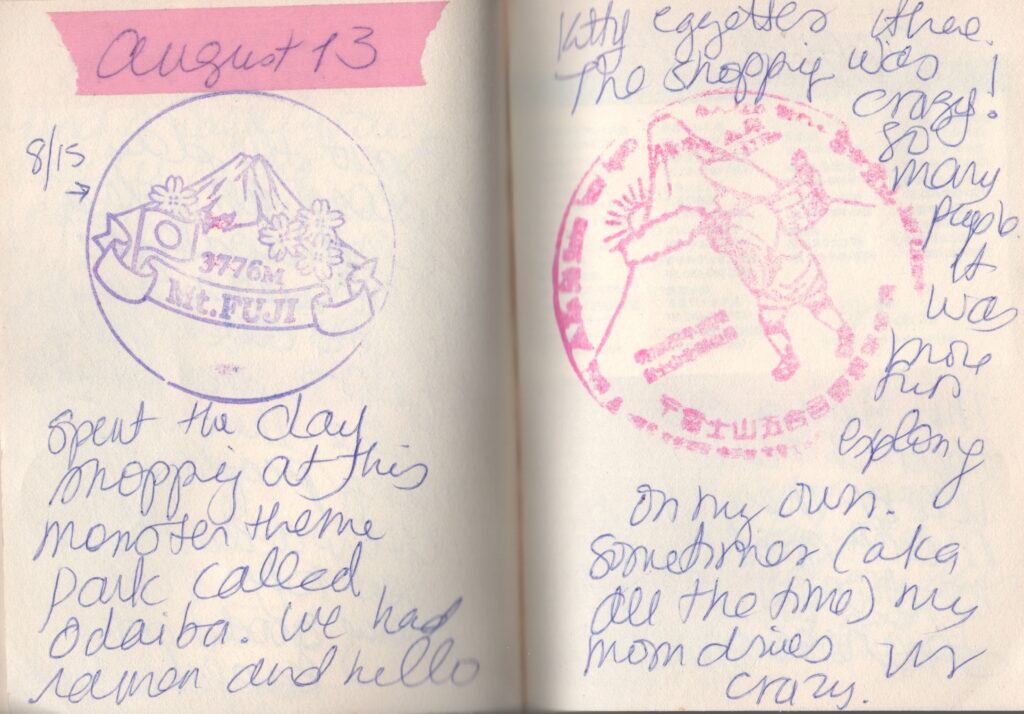 August 13
8/15
3776M
Mt.FUJI
spent the day
shopping at this
monster theme
park called
Odaiba. We had
ramen and hello
kitty eggettes there.
The shopping was
crazy!
so
many
people.
It
was
more
fun
exploring
on my own.
Sometimes (aka
all the time) my
mom drives
crazy.
富士山五合目